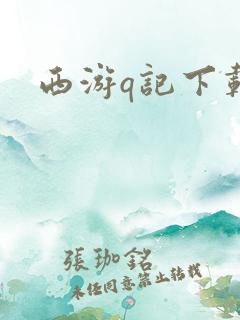 西游q記下載
張珈銘
未经同意禁止转载